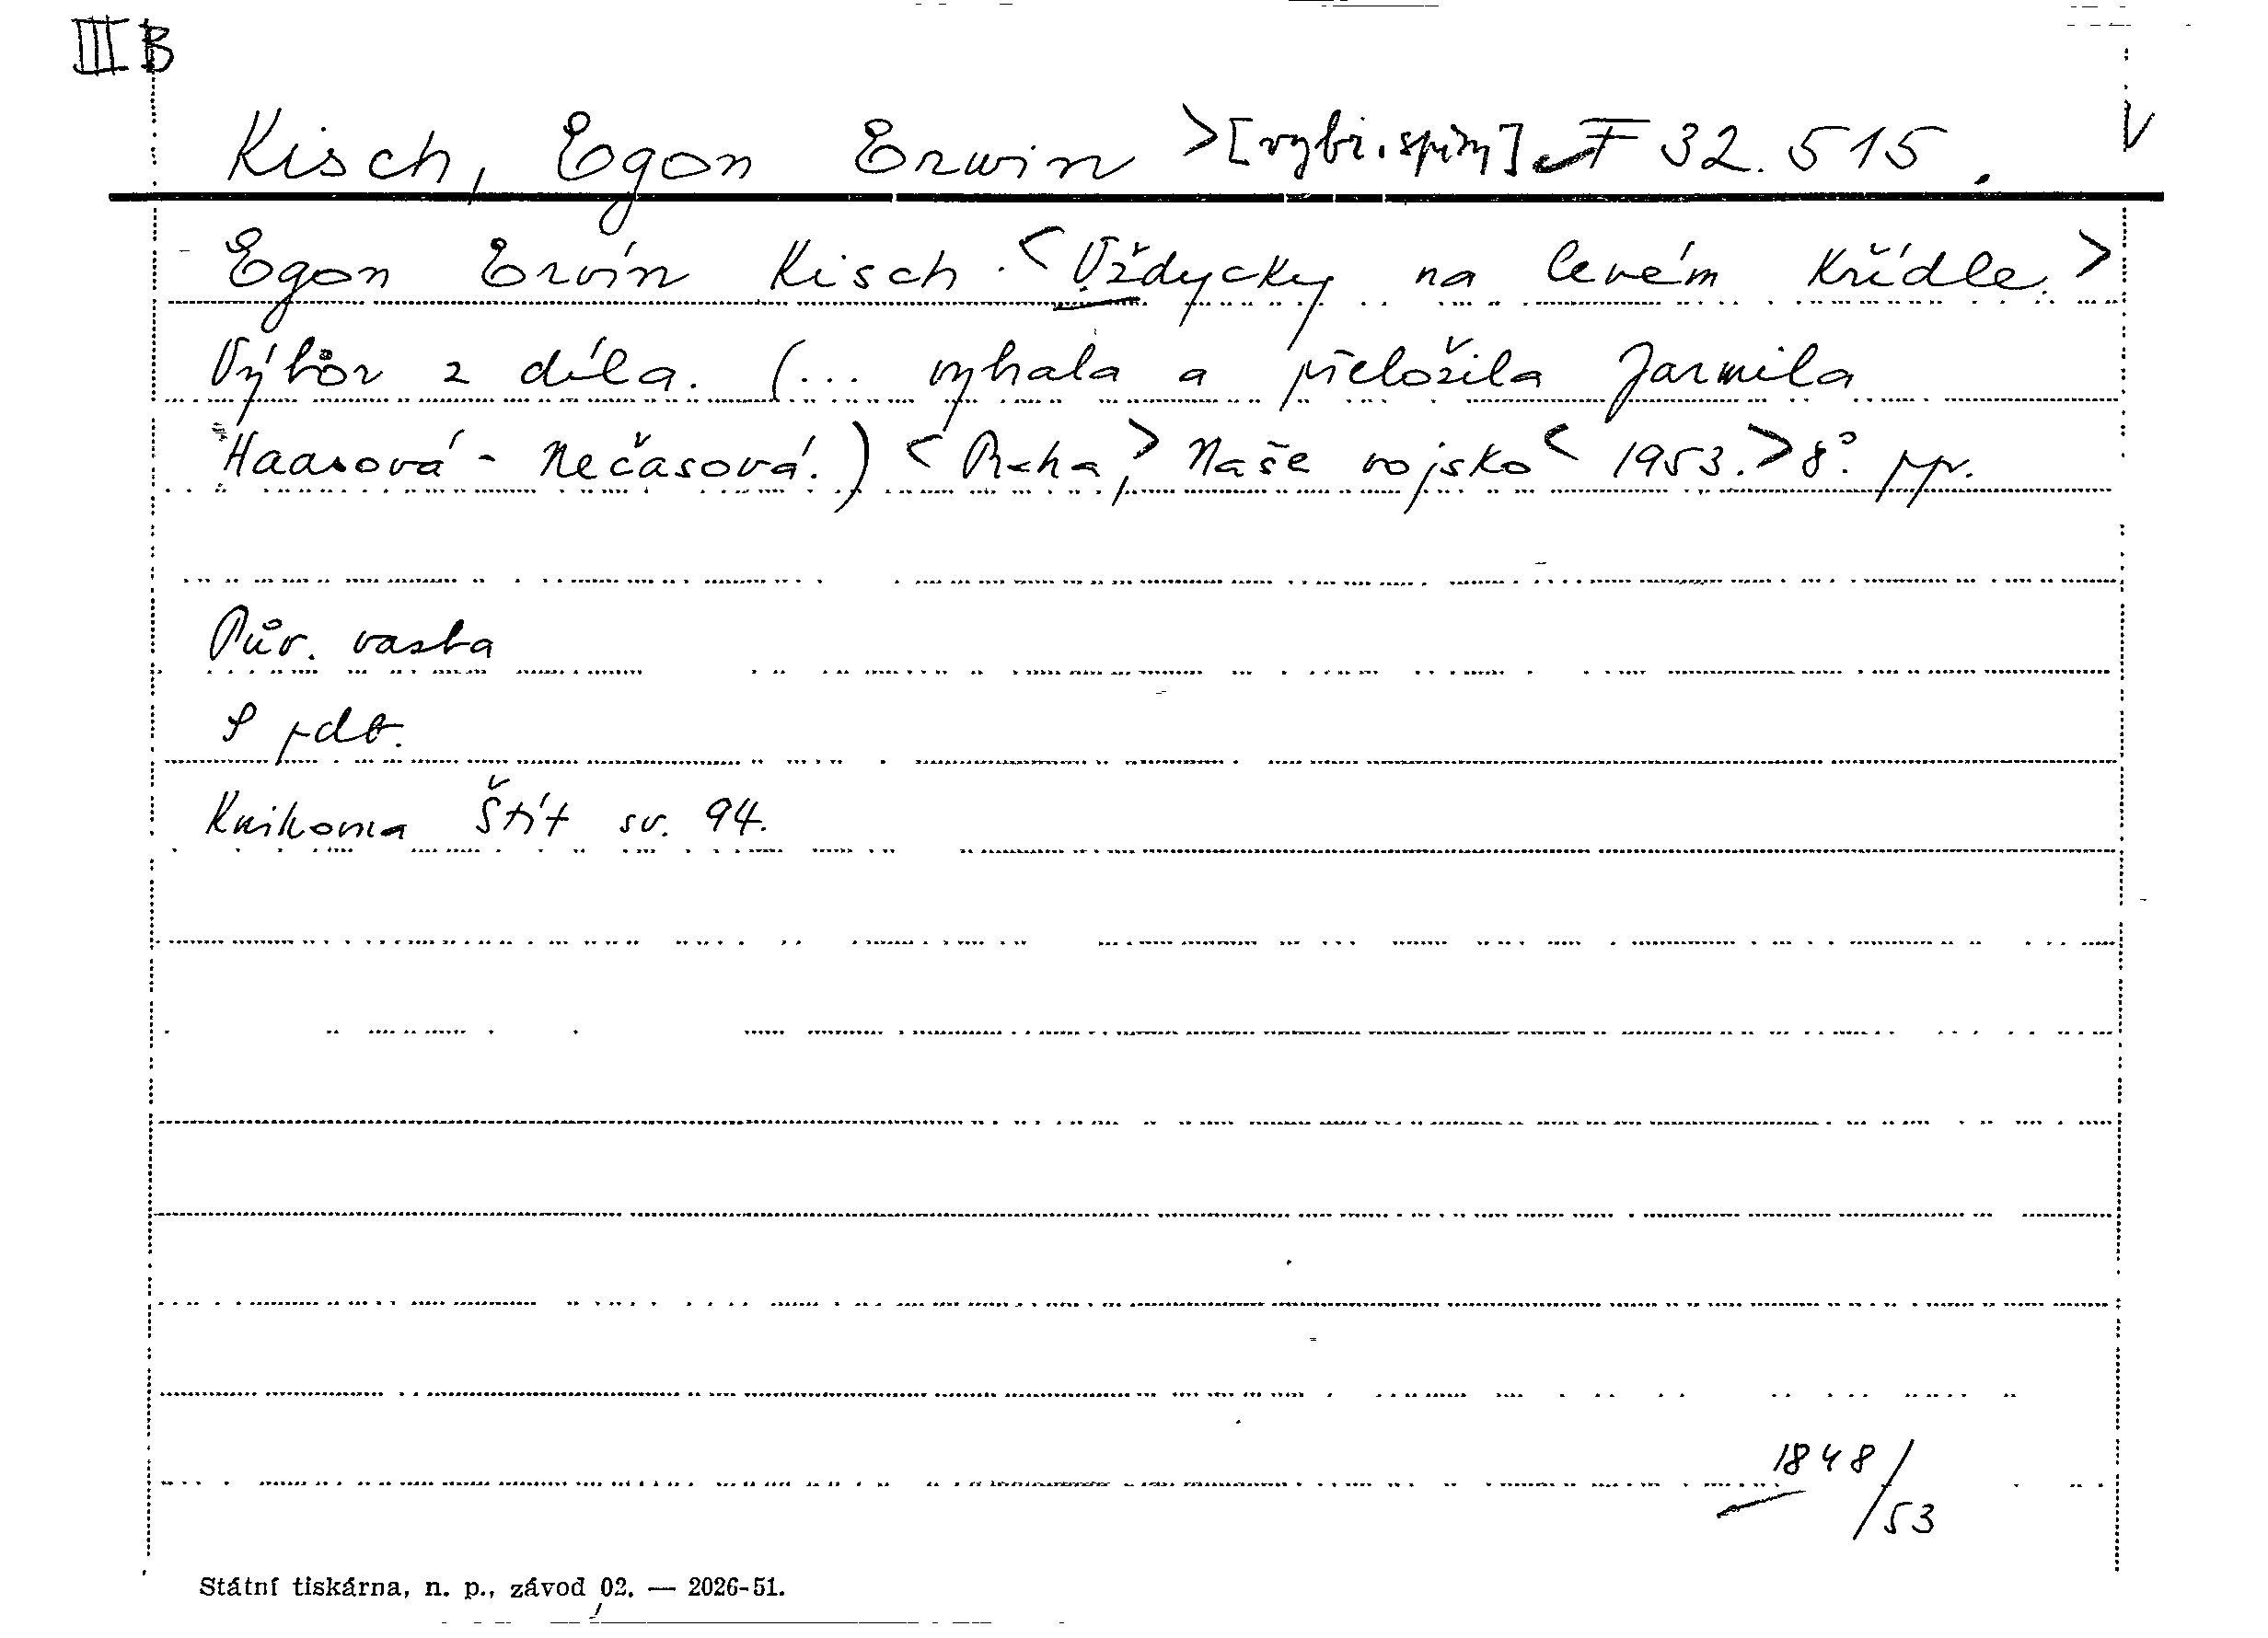 III B
Kisch, Egon Erwin > [vybr. spisy] F 32.515. V
Egon Ervín Kisch. < Vždycky na levém křídle. >
Výbor z díla. (... vybrala a přeložila Jarmila
Haasová - Nečasová.) < Praha, > Naše vojsko < 1953. > 8°. ppr.
Pův. vazba
S pdt.
Knihovna Štít sv. 94.
1848/
/53
Státní tiskárna, n. p., závod 02. — 2026-51.